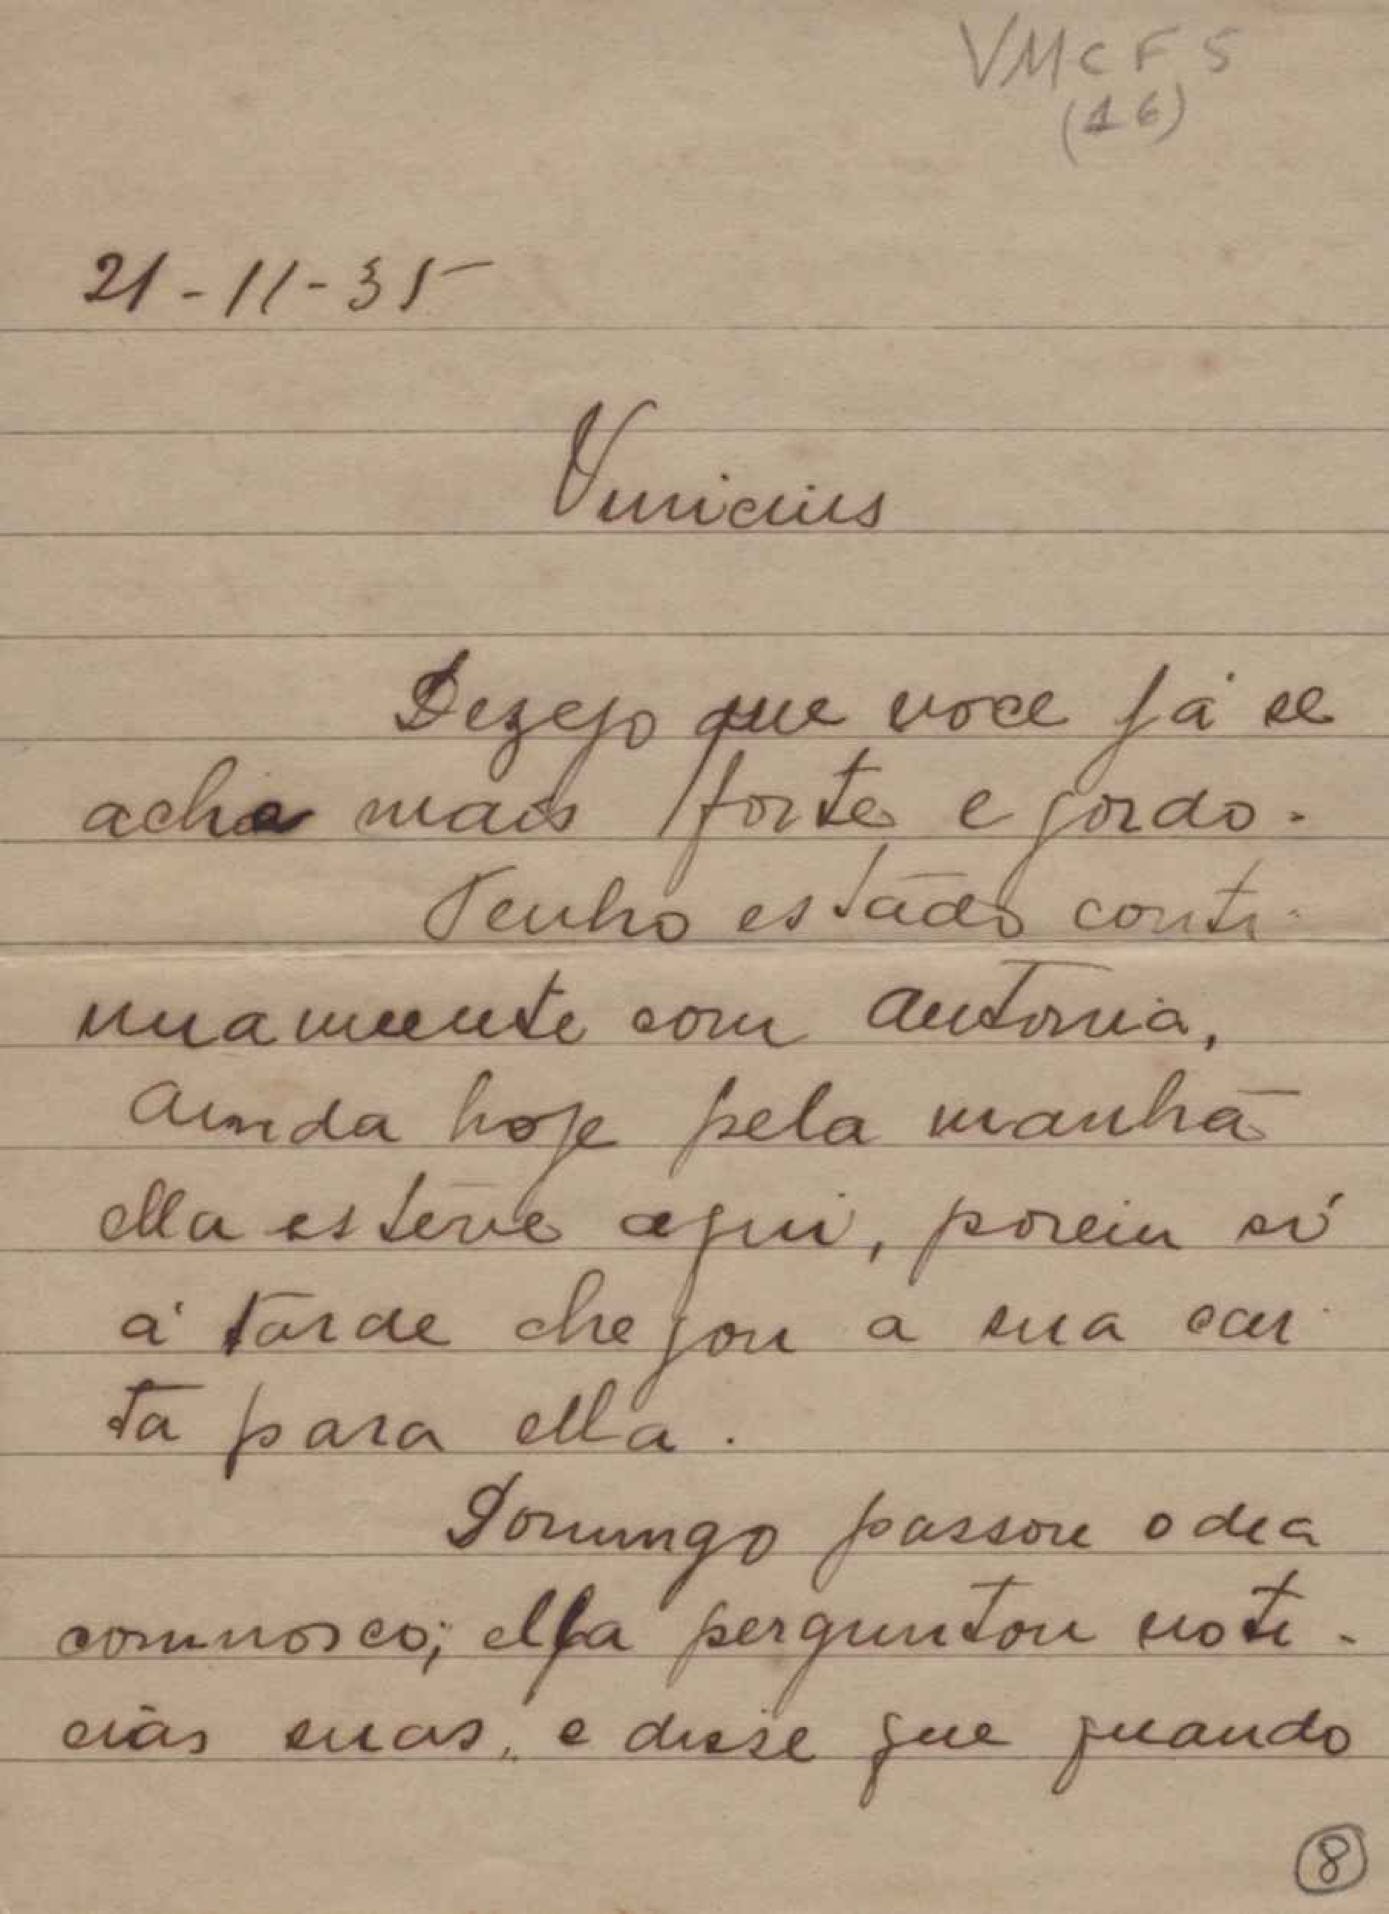 VMCF5
(16)
21-11-35
Vinicius
Dezejo que voce já se
acha mais forte e gordo.
Tenho estado conti-
nuamente com Antonia,
Ainda hoje pela manhã
ella esteve aqui, porem só
á tarde chegou a sua car-
ta para ella.
Domingo passou o dia
comnosco; ella perguntou noti-
cias suas, e disse que quando
8